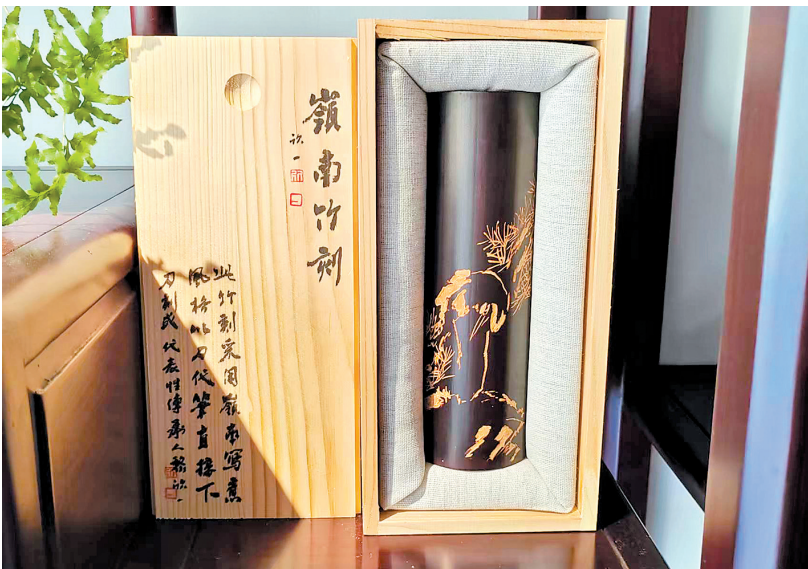 嶺南竹刻
欣一
此竹刻采用嶺南寫意
風格以刀代筆直接下
刀刻成 代表性傳承人 欣一